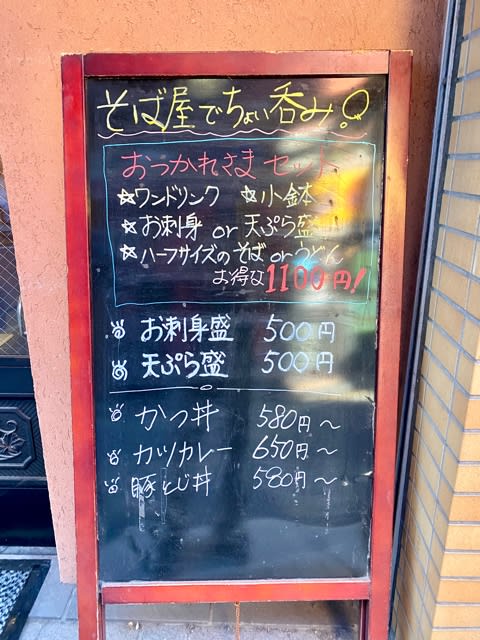 そば屋でちょい呑み!
おつかれさま セット
☆ワンドリンク ☆小鉢
☆お刺身 or 天ぷら盛
☆ハーフサイズのそば or うどん
お得な1100円!
お刺身盛 500円
天ぷら盛 500円
かつ丼 580円～
カツカレー 650円～
豚とじ丼 580円～